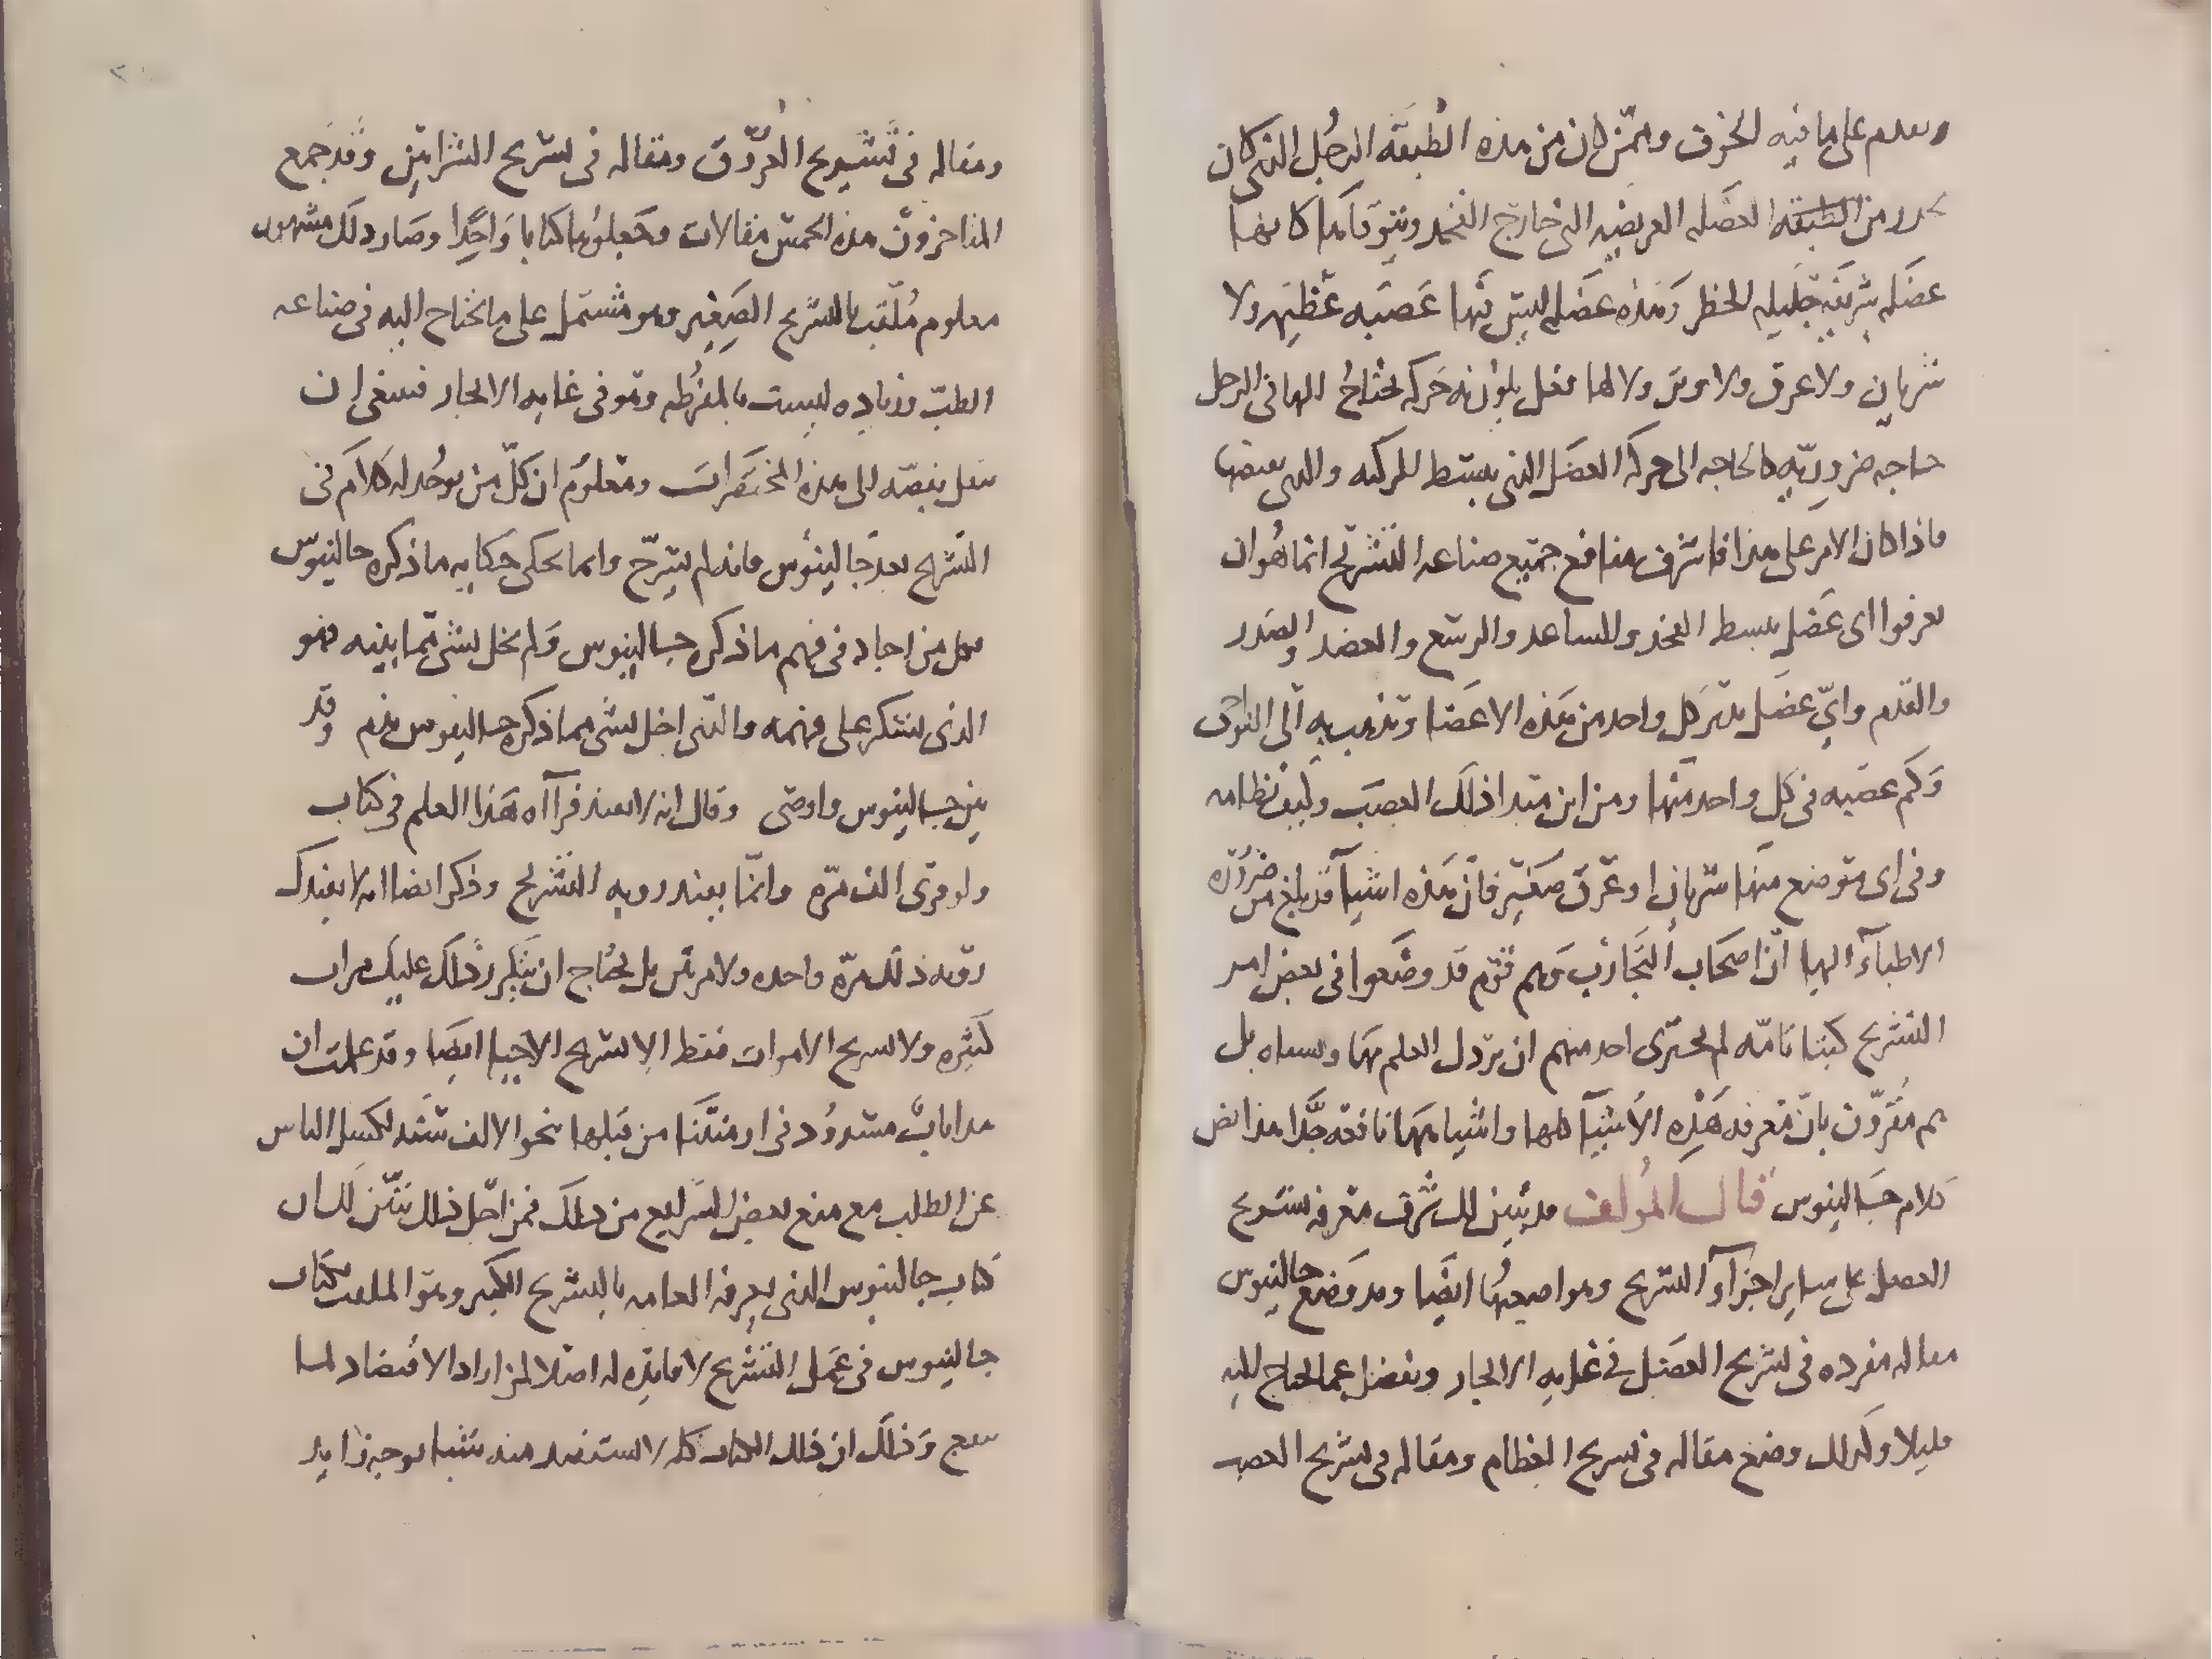 ويقدم على ما فيه الخرق وممن كان من هذه الطبقة الرجل الذي كان
من الطبقة العضلة العريضة التي خارج الفخذ ويتوقاها كانها
عضلة شريفة جليلة الخطر وهذه عضلة ليس فيها عصبة عظيمة ولا
شريان ولا عرق ولا وتر ولا لها فعل حركة يحتاج اليها في الرجل
حاجة ضرورية كالحاجة الى حركة العضل الذي يبسط الركبة والذي يقبضها
فاذا كان الامر على هذا فاشرف منافع جميع صناعة التشريح انما هو ان
يعرفوا اي عضل يبسط الفخذ والساعد والرسغ والعضد والصدر
والقدم واي عضل يدير كل واحد من هذه الاعضا ويذهب به الى النواحي
وكم عصبة في كل واحد منها ومن اين مبتدا ذلك العصب وكيف نظامه
وفي اي موضع منها شريان او عرق صغير فان هذه اشيآ قد بلغ من ضرورة
الاطبآء اليها ان اصحاب التجارب وهم قوم قد وضعوا في بعض امر
التشريح كتبا تامة لم يجترى احد منهم ان يرذل العلم بها بل
هم مقرون بان معرفة هذه الأشيآ كلها واشيا نافعة جدا هذا نص
كلام جالينوس قال المؤلف قد تبين لك شرف معرفة تشريح
العضل على ساير اجزآء التشريح ومواضعها ايضا وقد وضع جالينوس
مقاله مفرده في تشريح العضل في غاية الايجاز وتفضل عما يحتاج اليه
قليلا وكذلك وضع مقاله في تشريح العظام ومقاله في تشريح العصب
ومقاله في تشريح العروق ومقاله في تشريح الشرايين وقد جمع
المتاخرون هذه الخمس مقالات وجعلوها كتابا واحدا وصار ذلك مشهور
معلوم ملقب بالتشريح الصغير وهو مشتمل على ما يحتاج اليه في صناعة
الطب وزياده ليست بالمفرطه وهو في غاية الايجاز فينبغي ان
ينقل بنصه الى هذه المختصرات ومعلوم ان كل من يوجد له كلام في
التشريح بعد جالينوس فانه لم يشرح وانما يحكي حكاية ما ذكره جالينوس
فكل من اجاد في فهم ما ذكره جالينوس ولم يخل بشي مما بينه فهو
الذي يشكر على فهمه والذي اخل بشي مما ذكره جالينوس يذم وقد
بين جالينوس واوصى وقال انه لا يفيد قرآاه هذا العلم في كتاب
ولو قرى الف مره وانما يفيد رويه التشريح وذكر ايضا انه لا يفيدك
رويه ذلك مرة واحده ولا مرتين بل يحتاج ان يتكرر ذلك عليك مرات
كثيره ولا تشريح الاموات فقط الا تشريح الاحيا ايضا وقد علمت ان
هذا باب مسدود في ازمنتنا من قبلها نحو الالف سنه لكسل الناس
عن الطلب مع منع بعض الشرايع من ذلك فمن اجل ذلك تبين لك ان
كتاب جالينوس الذي يعرفه العامه بالتشريح الكبير وهو الملقب بكتاب
جالينوس في عمل التشريح لا فايدة له اصلا لمن اراد الاقتصاد لما
ينتفع وذلك ان ذلك الكتاب كله لا يستفيد منه شيا بوجه زايد